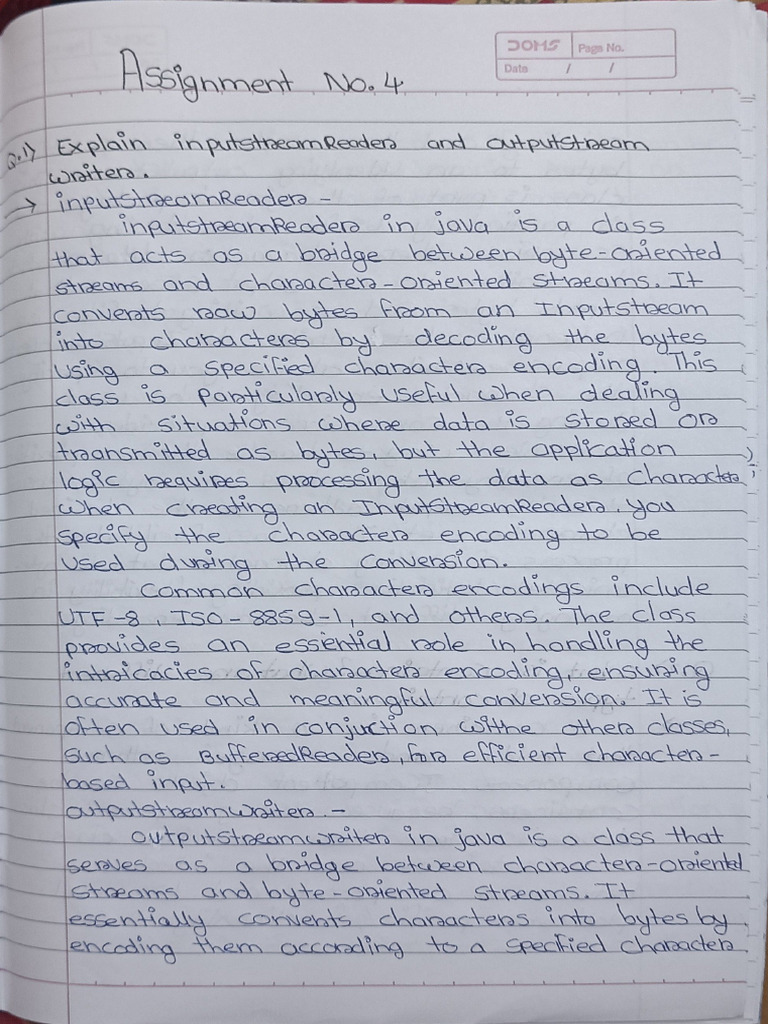 DOMS Page No.
Date / /
Assignment No. 4
Q.1) Explain inputstreamReader and outputstream
writer.
→ inputstreamReader -
inputstreamReader in java is a class
that acts as a bridge between byte-oriented
streams and character-oriented streams. It
converts raw bytes from an Inputstream
into characters by decoding the bytes
using a specified character encoding. This
class is particularly useful when dealing
with situations where data is stored or
transmitted as bytes, but the application
logic requires processing the data as character
when creating an InputStreamReader, you
specify the character encoding to be
used during the conversion.
Common character encodings include
UTF-8, ISO-8859-1, and others. The class
provides an essential role in handling the
intricacies of character encoding, ensuring
accurate and meaningful conversion. It is
often used in conjuction withe other classes,
such as BufferedReader, for efficient character-
based input.
outputstreamwriter. -
outputstreamwriter in java is a class that
serves as a bridge between character-oriented
streams and byte-oriented streams. It
essentially converts characters into bytes by
encoding them according to a specified character